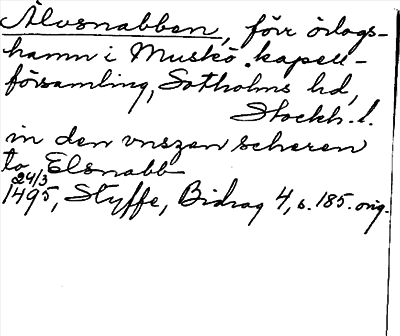 Älvsnabben, förr örlogs-
hamn i Muskö kapell-
församling, Sotholms hd,
Stockh. l.
in den vnszen scheren
to Elsnabb
24/3
1495, Styffe, Bidrag 4, s. 185. orig.